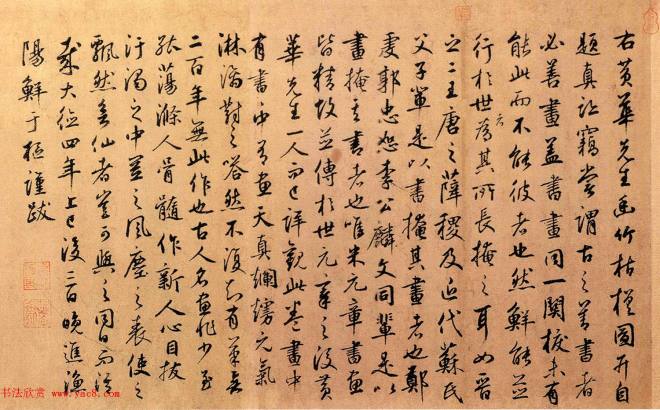 右黄華先生幽竹枯槎圖并自
題真迹竊嘗謂古之善書者
必善畫蓋書畫同一關捩未有
能此而不能彼者也然鮮能並
行於世者為其所長掩之耳如晉
之二王唐之薛稷及近代蘇氏
父子輩是以書掩其畫者也鄭
虔郭忠恕李公麟文同輩是以
畫掩其書者也唯米元章書畫
皆精故並傳於世元章之後黄
華先生一人而已詳觀此卷畫中
有書書中有畫天真爛熳元氣
淋漓對之嗒然不復知有筆矣
二百年無此作也古人名畫非少至
能蕩滌人骨髓作新人心目拔
汙濁之中置之風塵之表使之
飄然欲仙者豈可與之同日而語
哉大德四年上巳後三日晚進漁
陽鮮于樞謹跋
书法欣赏 www.yac8.com